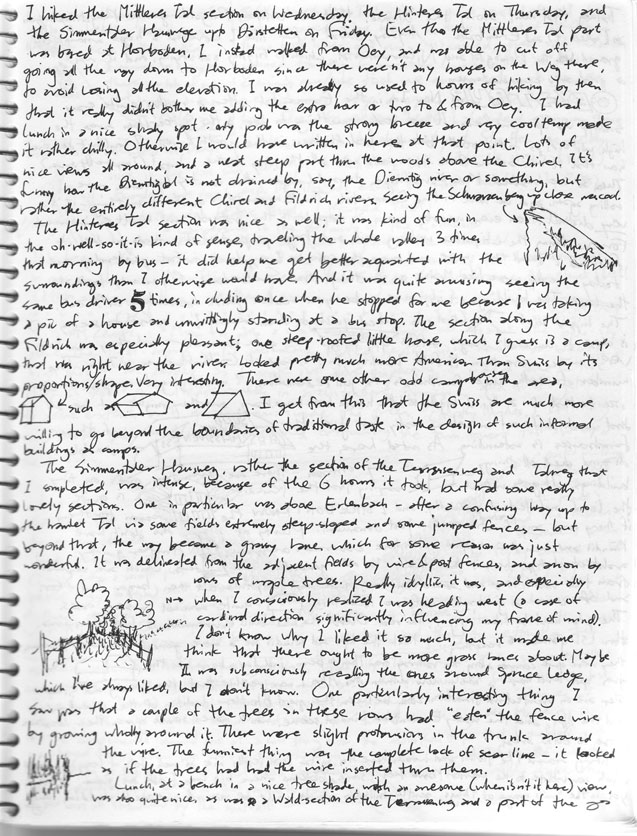 I hiked the Mittleres Tal section on Wednesday, the Hinteres Tal on Thursday, and
the Simmentaler Hausweg upto Därstetten on Friday. Even tho the Mittleres Tal part
was based at Horboden, I instead walked from Oey, and was able to cut off
going all the way down to Horboden since there weren't any houses on the Weg there,
to avoid losing all the elevation. I was already so used to hours of hiking by then
that it really didn't bother me adding the extra hour or two to & from Oey. I had
lunch in a nice shady spot - only prob was the strong breeze and very cool temp made
it rather chilly. Otherwise I would have written in here at that point. Lots of
nice views all around, and a neat steep part thru the woods above the Chirel. It's
funny how the Diemtigtal is not drained by, say, the Diemtig river or something, but
rather the entirely different Chirel and Fildrich rivers. Seeing the up close was cool.
The Hinteres Tal section was nice as well; it was kind of fun, in
the oh-well-so-it-is kind of sense, traveling the whole valley 3 times
that morning by bus - it did help me get better acquainted with the
surroundings than I otherwise would have. And it was quite amusing seeing the
same bus driver 5 times, including once when he stopped for me because I was taking
a pic of a house and unwittingly standing at a bus stop. The section along the
Fildrich was especially pleasant; one steep-roofed little house, which I guess is a camp,
that was right near the river, looked pretty much more American than Swiss by its
proportions/shape. Very interesting. There were some other odd camp houses in the area,
such as and . I get from this that the Swiss are much more
willing to go beyond the boundaries of traditional taste in the design of such informal
buildings as camps.
The Simmentaler Hausweg, rather the section of the Terrassenweg and Talweg that
I completed, was intense, because of the 6 hours it took, but had some really
lovely sections. One in particular was above Erlenbach - after a confusing way up to
the hamlet Tal via some fields extremely steep-sloped and some jumped fences - but
beyond that, the way became a grassy lane, which for some reason was just
wonderful. It was delineated from the adjacent fields by wire & post fences, and anon by
rows of maple trees. Really idyllic, it was, and especially
when I consciously realized I was heading west (a case of
cardinal direction significantly influencing my frame of mind).
I don't know why I liked it so much, but it made me
think that there ought to be more grass lanes about. Maybe
I was subconsciously recalling the ones around Spruce Ledge,
which I've always liked, but I don't know. One particularly interesting thing I
saw was that a couple of the trees in these rows had "eaten" the fence wire
by growing wholly around it. There were slight protrusions in the trunk around
the wire. The funniest thing was the complete lack of scar line - it looked
as if the trees had had the wire inserted thru them.
Lunch, at a bench in a nice tree shade, with an awesome (when isn't it here) view,
was also quite nice, as was a Wald-section of the Terrassenweg and a part of the